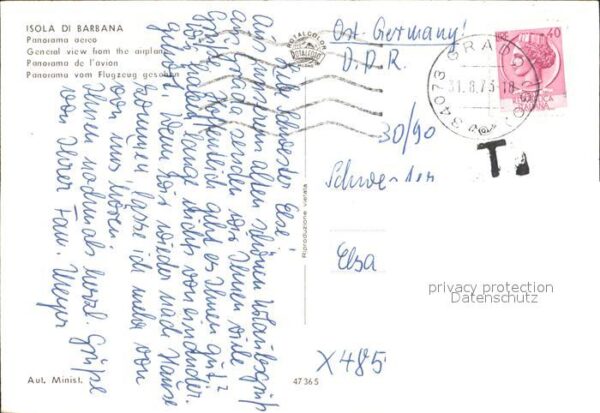 ISOLA DI BARBANA
Panorama aereo
General view from the airplane
Panorama de l'avion
Panorama vom Flugzeug gesehen
ROTALCOLOR
Ost-Germany!
D.D.R.
34073 GRADO (GO)
31.8.73-18
40
REPUBBLICA
ITALIANA
T
30/90
Schwester
Elsa
privacy protection
Datenschutz
X485
Liebe Schwester Else!
Aus unserem alten schönen Urlaubsort
Grado senden wir Ihnen viele
Grüße. Hoffentlich geht es Ihnen gut?
Wir haben lange nichts voneinander
gehört. Wenn wir wieder nach Hause
kommen lasse ich mehr von
uns hören.
Ihnen nochmals herzl. Grüße
von Ihrer Fam. Meyer
Riproduzione vietata
Aut. Minist.
47365